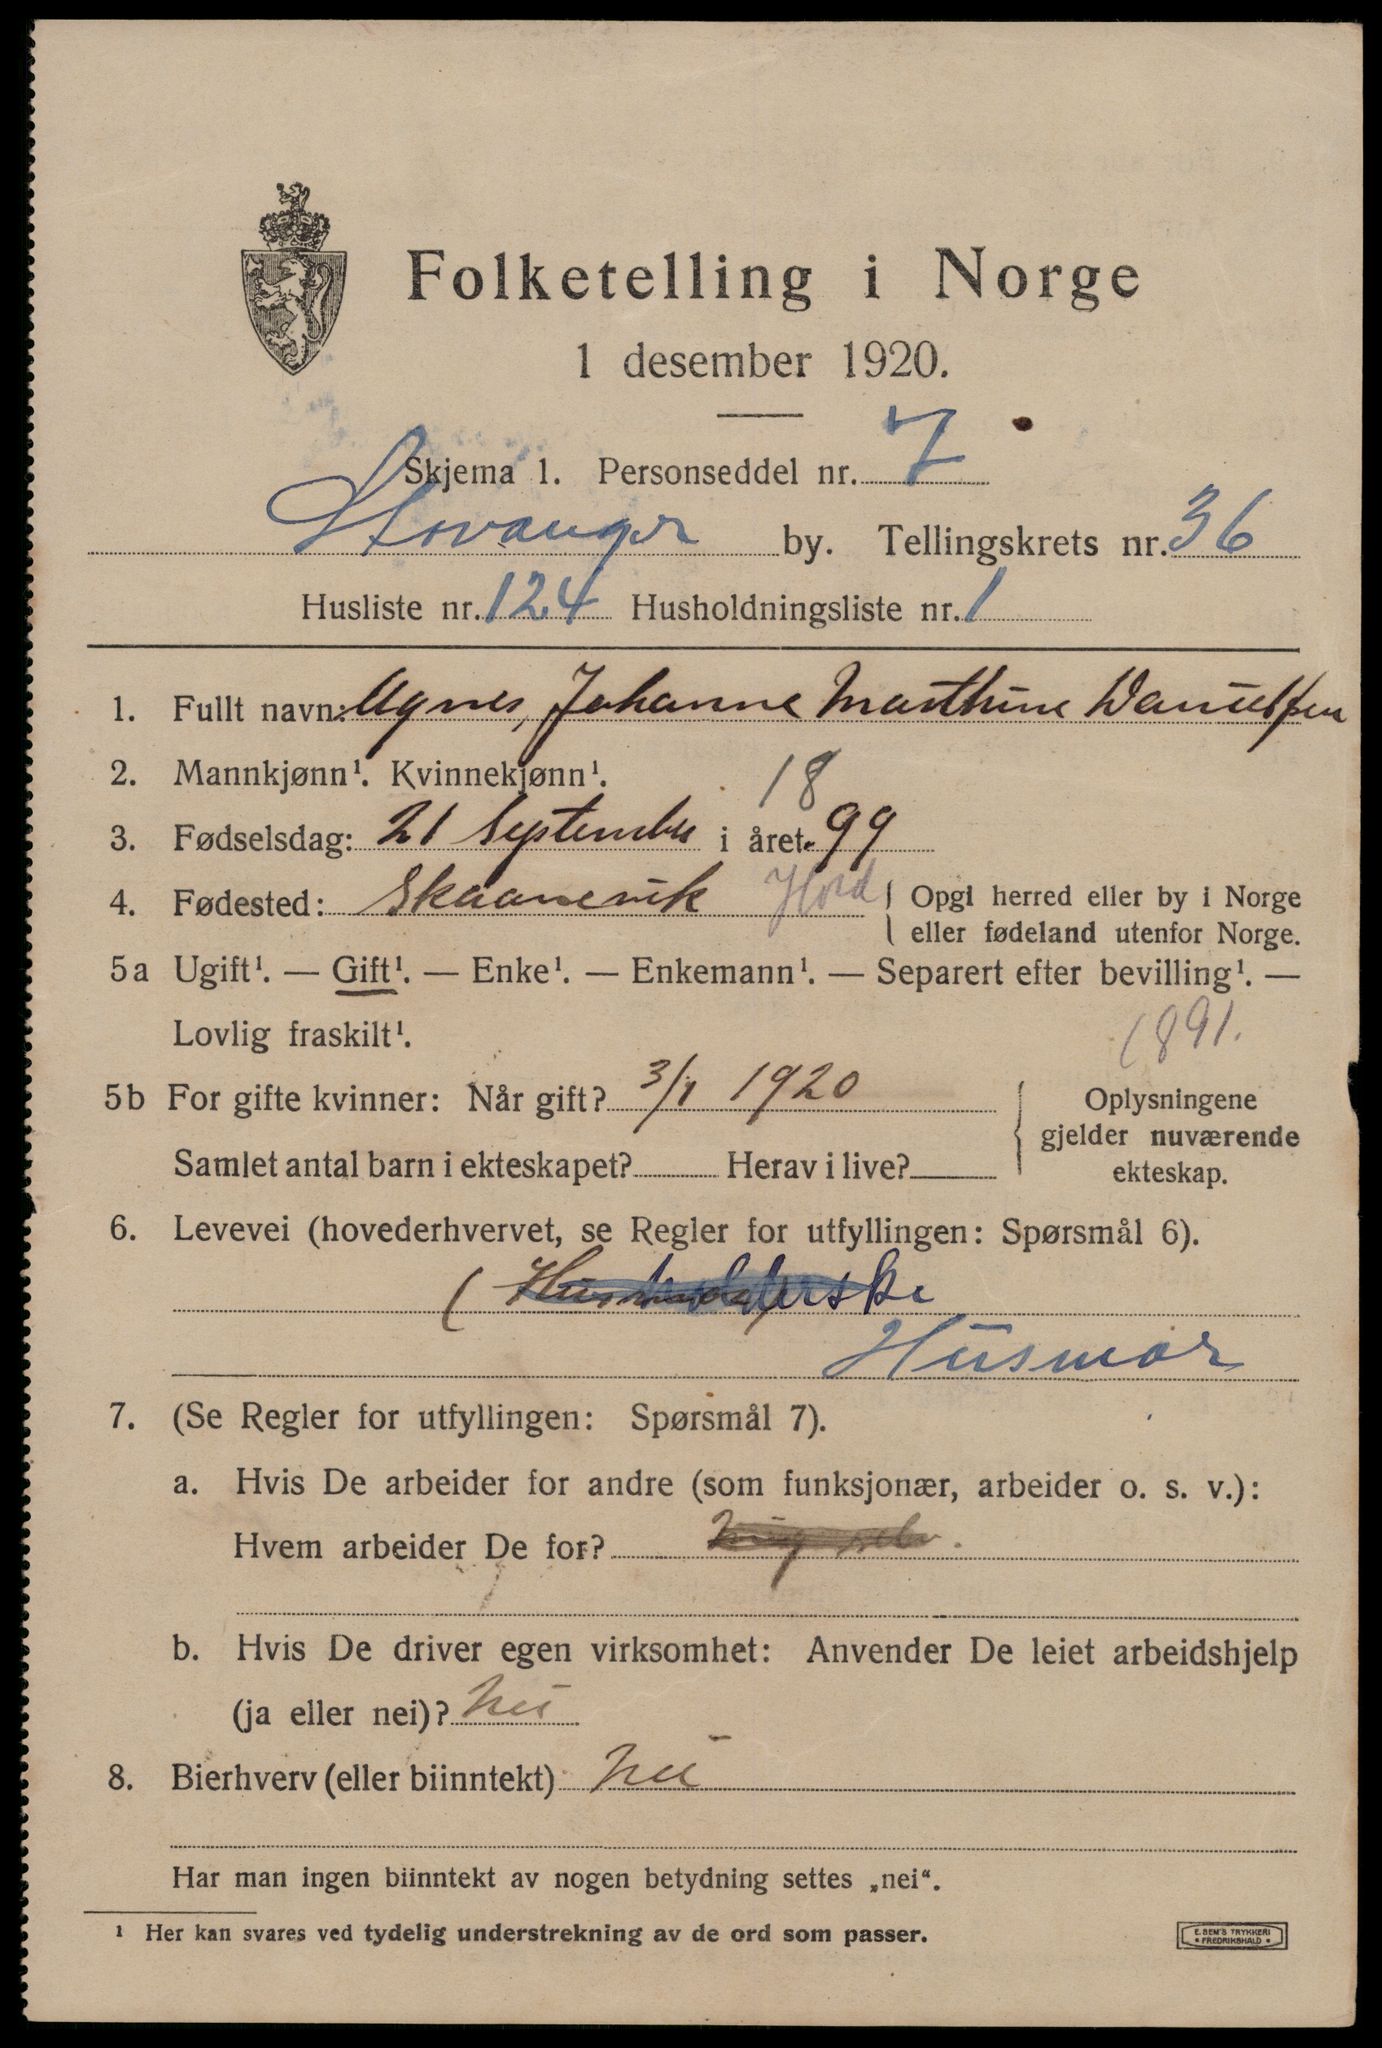 Folketelling i Norge
1 desember 1920.
Skjema 1. Personseddel nr. 7
Stavanger by. Tellingskrets nr. 36
Husliste nr. 124 Husholdningsliste nr. 1
1. Fullt navn: Agnes, Johanne Marthine Danielsen
2. Mannkjønn¹. Kvinnekjønn¹.
3. Fødselsdag: 21 September i året 1899
4. Fødested: Skaanevik Hord { Opgi herred eller by i Norge
eller fødeland utenfor Norge.
5a Ugift¹. — Gift¹. — Enke¹. — Enkemann¹. — Separert efter bevilling¹. —
Lovlig fraskilt¹.
1891.
5b For gifte kvinner: Når gift? 3/1 1920
Samlet antal barn i ekteskapet? Herav i live?
Oplysningene
gjelder nuværende
ekteskap.
6. Levevei (hovederhvervet, se Regler for utfyllingen: Spørsmål 6).
Husmor
7. (Se Regler for utfyllingen: Spørsmål 7).
a. Hvis De arbeider for andre (som funksjonær, arbeider o. s. v.):
Hvem arbeider De for? Mig selv.
b. Hvis De driver egen virksomhet: Anvender De leiet arbeidshjelp
(ja eller nei)? Nei
8. Bierhverv (eller biinntekt) Nei
Har man ingen biinntekt av nogen betydning settes „nei“.
¹ Her kan svares ved tydelig understrekning av de ord som passer.
E. SEM'S TRYKKERI
FREDRIKSHALD